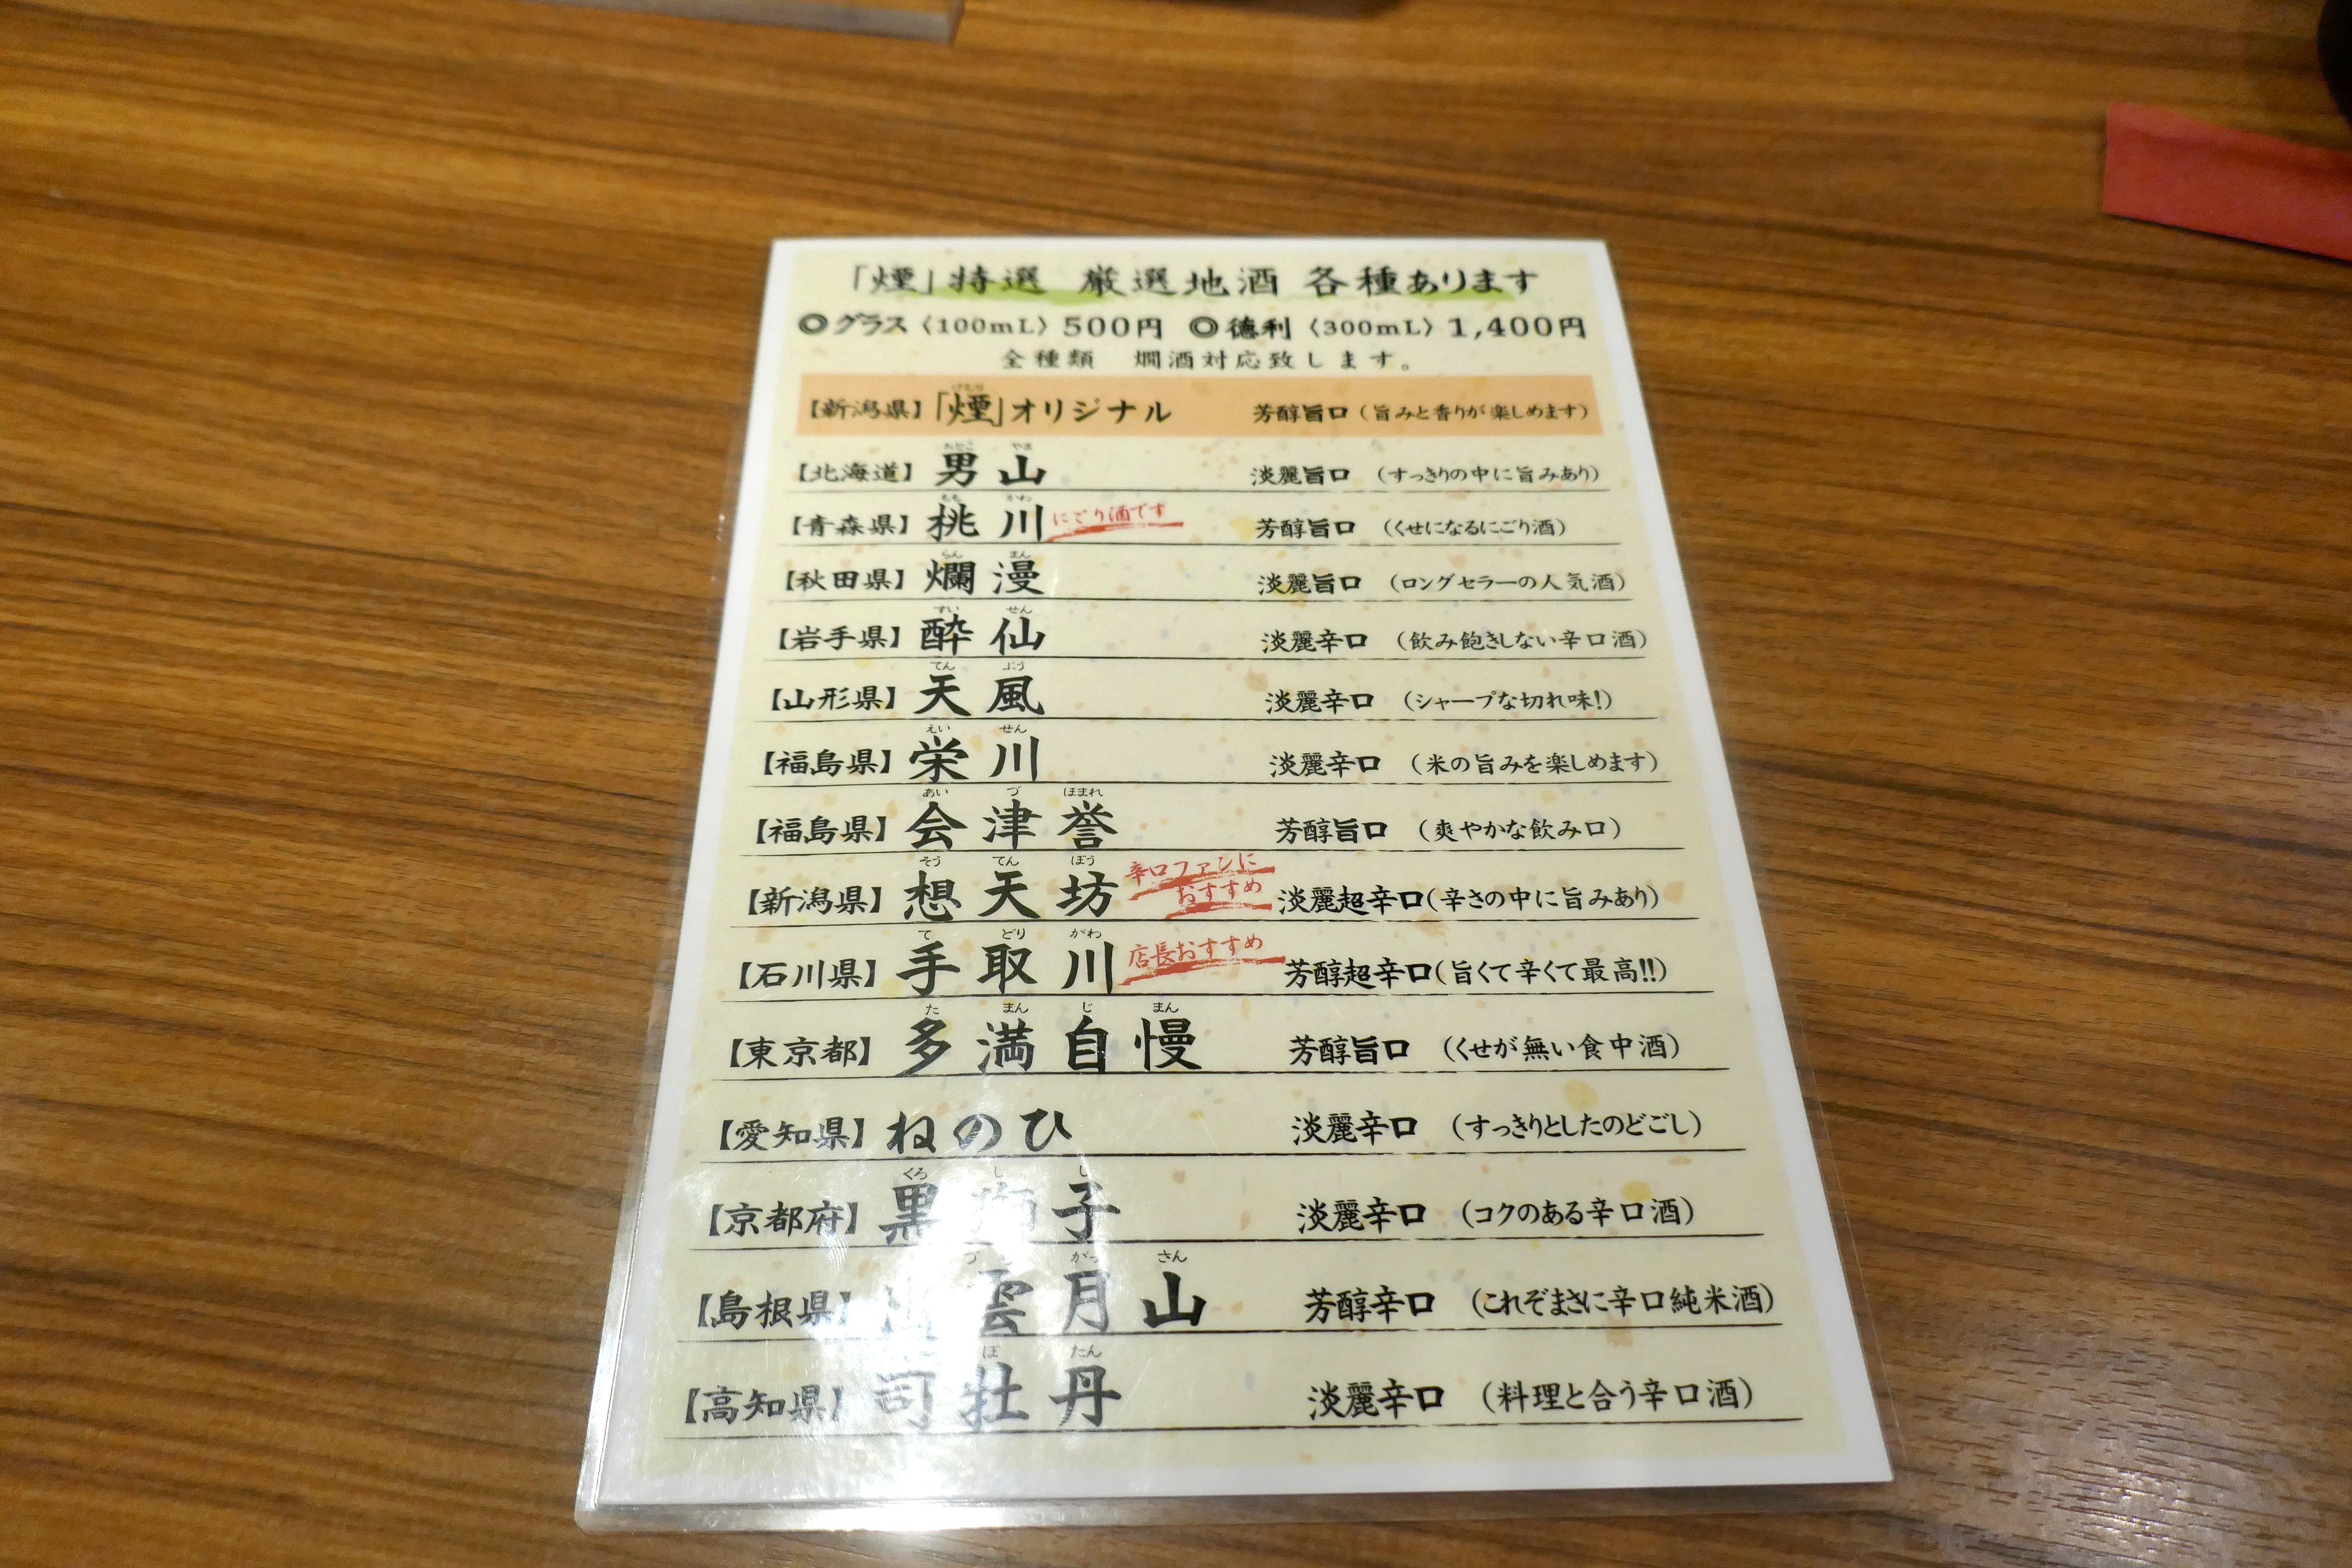 「煙」特選 厳選地酒 各種あります
◎グラス〈100mL〉500円 ◎徳利〈300mL〉1,400円
全種類 燗酒対応致します。
【新潟県】「煙」オリジナル 芳醇旨口(旨みと香りが楽しめます)
【北海道】男山 淡麗旨口 (すっきりの中に旨みあり)
【青森県】桃川 にごり酒です 芳醇旨口 (くせになるにごり酒)
【秋田県】爛漫 淡麗旨口 (ロングセラーの人気酒)
【岩手県】酔仙 淡麗辛口 (飲み飽きしない辛口酒)
【山形県】天風 淡麗辛口 (シャープな切れ味!)
【福島県】栄川 淡麗辛口 (米の旨みを楽しめます)
【福島県】会津誉 芳醇旨口 (爽やかな飲み口)
【新潟県】想天坊 辛口ファンにおすすめ 淡麗超辛口(辛さの中に旨みあり)
【石川県】手取川 店長おすすめ 芳醇超辛口(旨くて辛くて最高!!)
【東京都】多満自慢 芳醇旨口 (くせが無い食中酒)
【愛知県】ねのひ 淡麗辛口 (すっきりとしたのどごし)
【京都府】黒獅子 淡麗辛口 (コクのある辛口酒)
【島根県】出雲月山 芳醇辛口 (これぞまさに辛口純米酒)
【高知県】司牡丹 淡麗辛口 (料理と合う辛口酒)